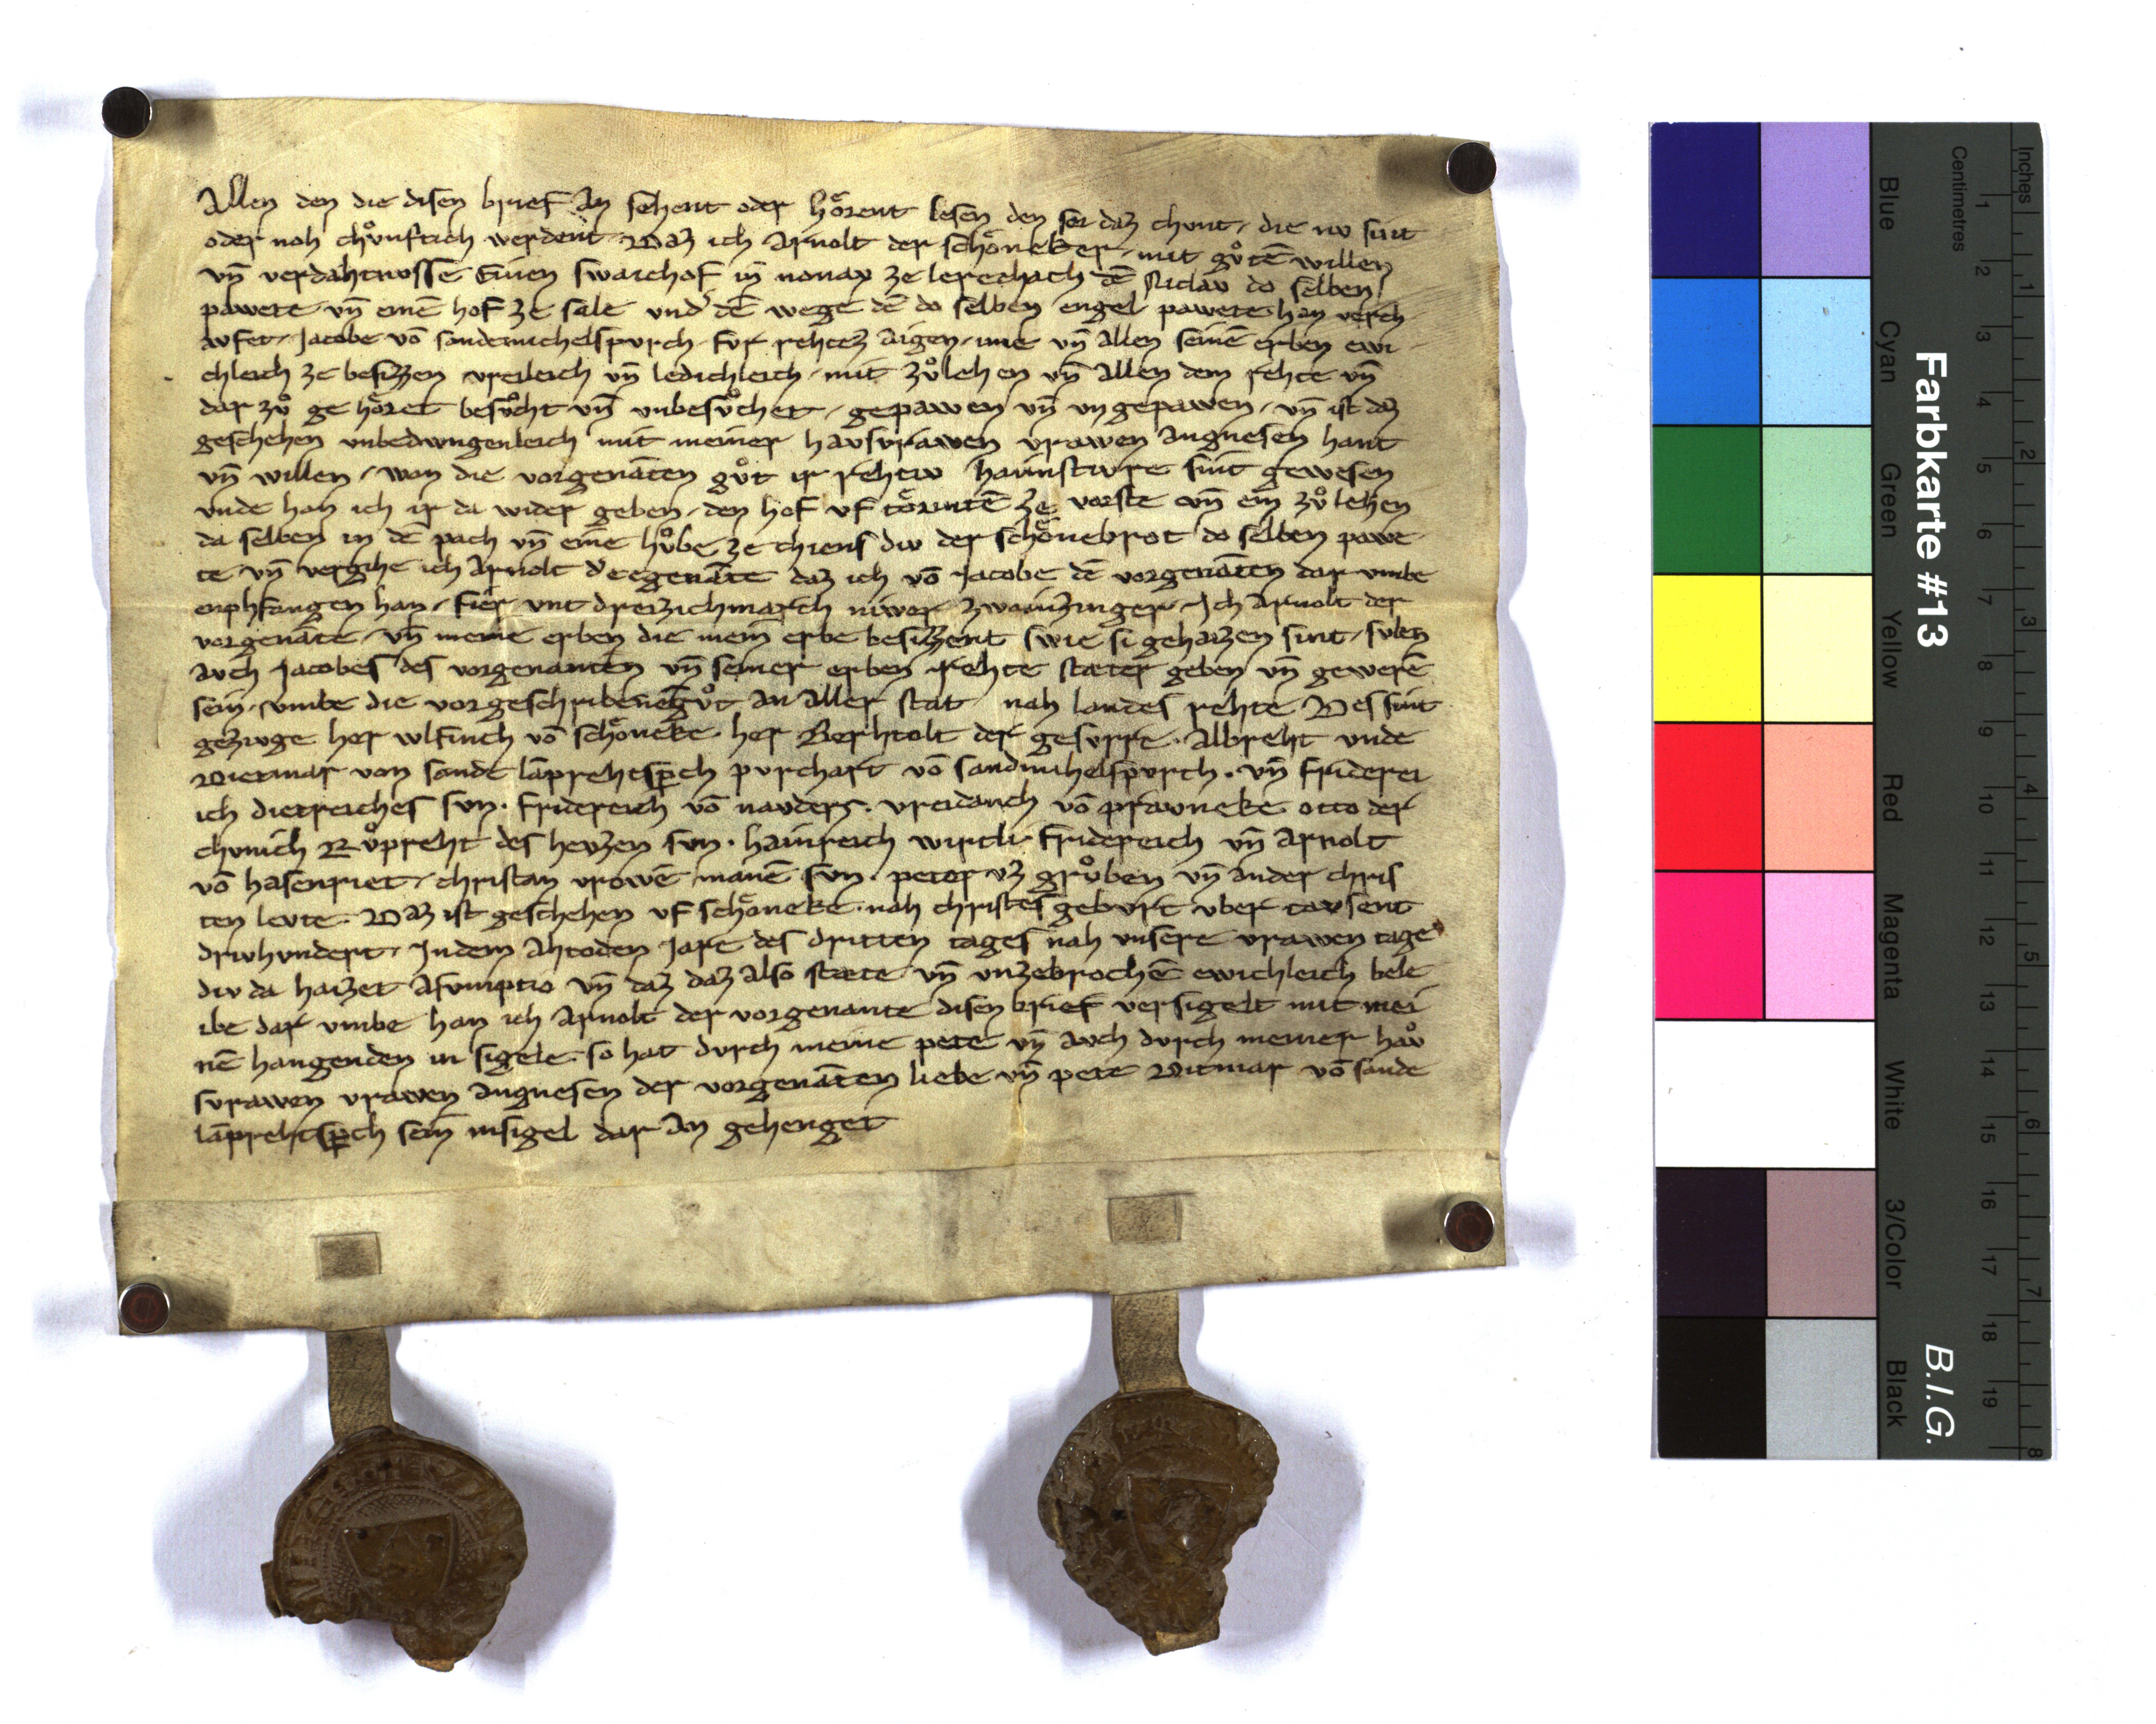 Allen den die disen brief an sehent oder hoͤrent lesen den sei daz chunt, die nv sint
oder noh chvͦnftich werdent. Daz ich Arnolt der schoͤneker, mit gvͦtē willen
vn̄ verdahtnvsse Einen swaichof in nonay ze lerechach dē Niclav do selben
pawete, vn̄ einē hof ze sale vnd᾽ dē wege dē do selben engel pawete han verch
avfet, Jacobe vō sandemichelspvrch, fvr rehtez aigen, ime vn̄ allen seinē erben ewi
chleich ze besizzen vreileich vn̄ ledichleich, mit zvͦlehen vn̄ allen dem rehte vn̄
dar zvͦ ge hoͤret besvͦcht vn̄ vnbesvͦchet, gepawen vn̄ vngepawen, vn̄ ist daz
geschehen vnbedwngenleich mit meiner havsvrawen vrawen angnesen hant
vn̄ willen, won die vorgenāten gvͦt ir rehtiv haimstivre sint gewesen
vnde han ich ir da wider geben, den hof vf toͤrntē ze vorste vn̄ ein zvͦ lehen
da selben in dē pach vn̄ eine hvͦbe ze chiens div der schoͤnebrot do selben pawe
te, vn̄ vergihe ich Arnolt d᾽ eegenāte daz ich vō Jacobe dē vorgenāten dar vmbe
enphfangen han, fier vnt dreizich march niwer zwainzinger. Ich Arnolt der
vorgenāte, vn̄ meine erben die mein erbe besizzent swie si gehaizen sint, svlen
avch Jacobes des vorgenanten vn̄ seiner erben rehte stæter geben vn̄ gewerē
sein, vmbe die vorgeschribenē gvͦt an aller stat nah landes rehte Des sint
gezivge her wlfinch vō schoͤneke. her Berhtolt der gesvrre. Albreht vnde
Dietmar von sande lāprehtsp̄ch pvrchart vō sandmihelspvrch. vn̄ friderei
ich dietreiches svn. fridereich vō navders. vreidanch vō pravneke otto der
chvnich Rvͦpreht des heyzen svn. hainreich wirtli fridereich vn̄ Arnolt
vō hasenriet, christan vrowē manē svn. peter vz grvͦben vn̄ ander chris
ten levte. Daz ist geschehen vf schoͤneke. nah christes gebvrt vber tavsent
drivhvndert, Jndem Ahtoden Jare des dritten tages nah vnsere vrawen tage
div da haizet Asvmptio vn̄ daz daz also stæte vn̄ vnzebrochē ewichleich bele
ibe dar vmbe han ich Arnolt der vorgenante disen brief versigelt mit mei
nē hangenden in sigele. so hat dvrch meine pete vn̄ avch dvrch meiner hav
svrawen vrawen angnesen der vorgenāten liebe vn̄ pete Ditmar vō sande
lāprehtsp̄ch sein insigel dar an gehenget
Farbkarte #13
B.I.G.
Blue Cyan Green Yellow Red Magenta White 3/Color Black
Centimetres 1 2 3 4 5 6 7 8 9 10 11 12 13 14 15 16 17 18 19
Inches 1 2 3 4 5 6 7 8